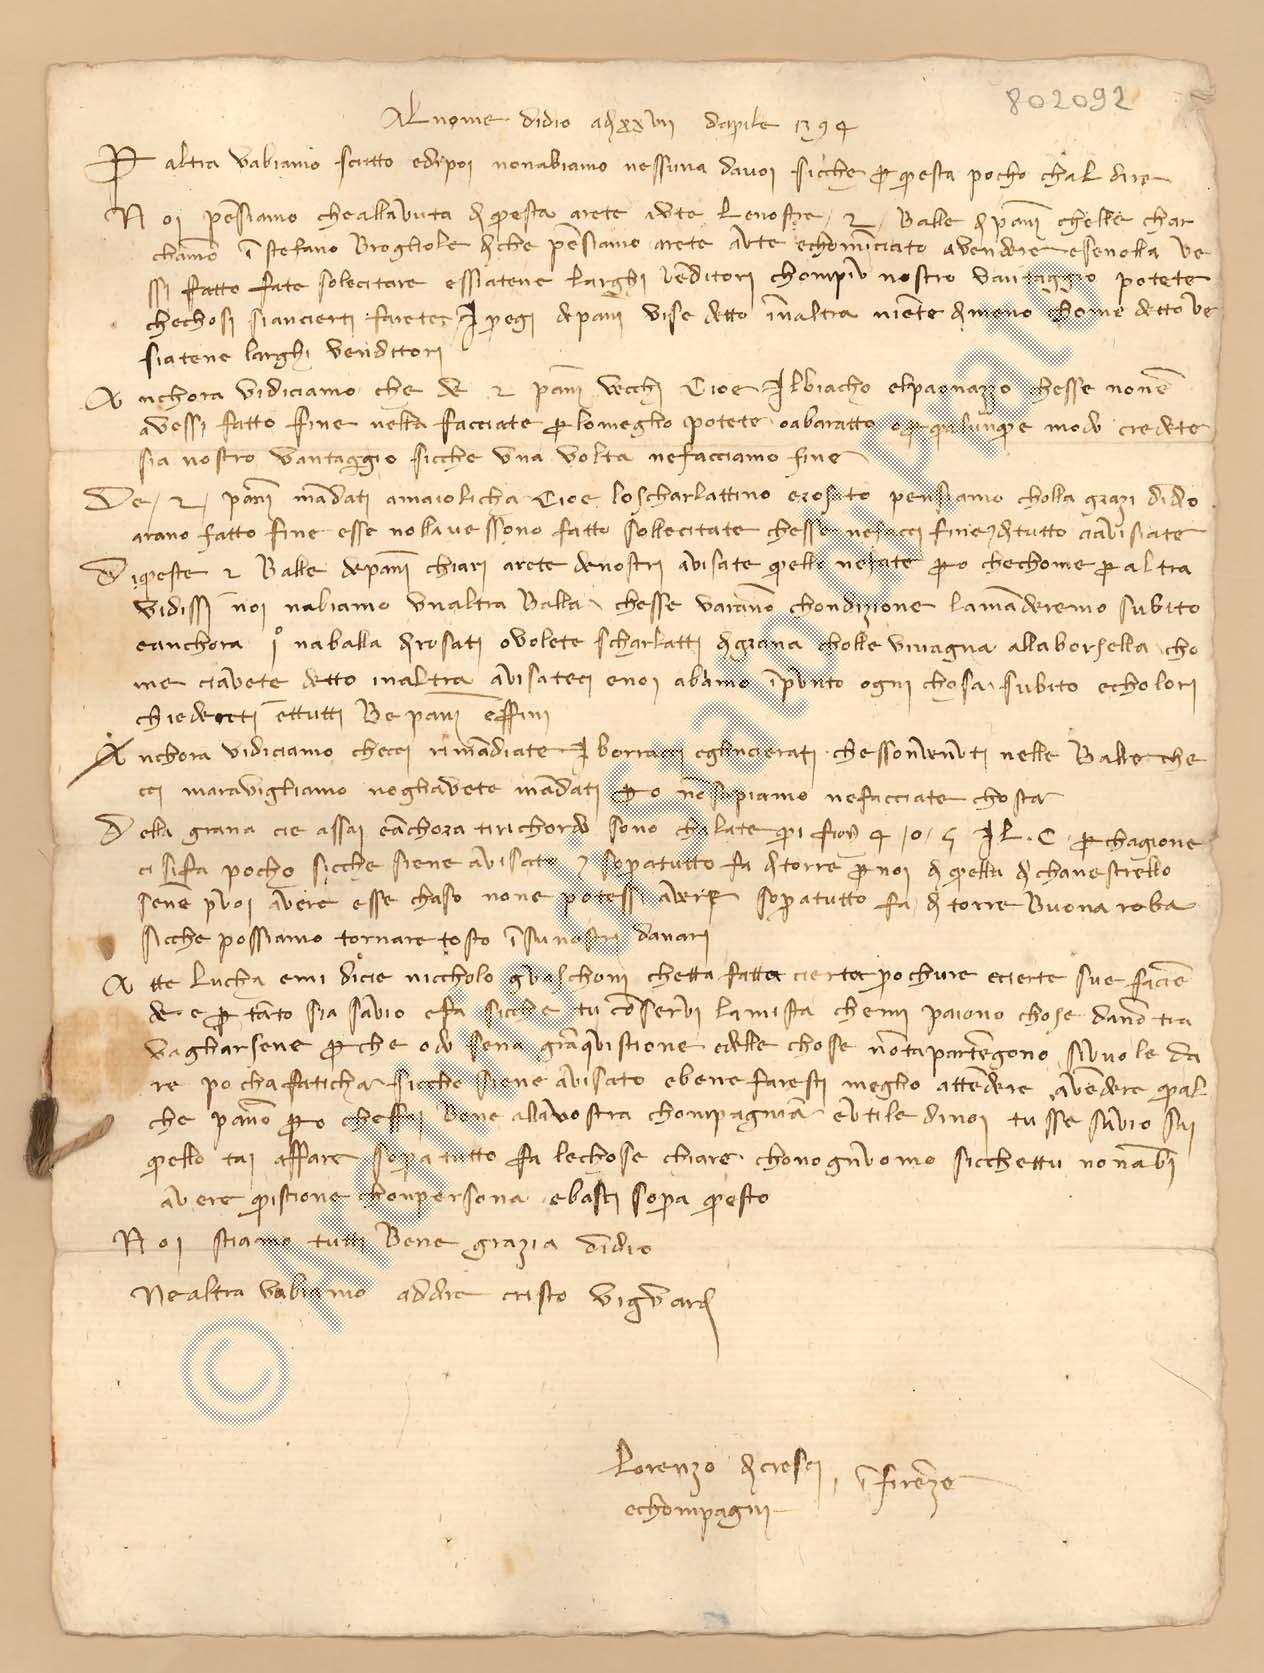 802092
Al nome didio adi xxvii daprile 1394
P altra vabiamo scritto edipoi nonabiamo nessuna davoi sicche p questa pocho chal dire
Noi pensiamo cheallavuta di questa arete avte le nostre 2 Balle di panni chelle char
chamo i stefano Brogliole di che pensiamo arete avte echominciato avendere esenolla ve
ssi fatto fate solecitare essiatene larghi venditori chompiv nostro vantaggio potete
chechosi siancierti farete I pregi depani vise detto innaltra niente di meno chome detto ve
siatene larghi venditori
Anchora vidiciamo che de 2 panni vecchi Cioe Ilbiacho elpaonazzo chesse none
avessi fatto fine nella facciate p lomeglio potete oabaratto o p qualunque modo credete
sia nostro vantaggio sicche una volta nefacciamo fine
De 2 panni mandati amaiolicha Cioe loscharlattino erosato pensiamo cholla grazi didio
arano fatto fine esse nollavessono fatto sollecitate chesse nefacci fine ditutto ciavisiate
Di queste 2 Balle depanni chiari arete denostri avisate quello nefate pero chechome p altra
vidissi noi nabiamo unaltra Balla chesse varanno chondizione lamanderemo subito
eanchora i naballa di rosati ovolete scharlatti di grana cholle vivagna allaborsella cho
me ciavete detto inaltra avisateci enoi abiamo i punto ogni chosa subito echolori
chiederete ettutti Be pani effini
Anchora vidiciamo checci rimandiate I borracci eglincierati chessonvenvti nelle Balle che
cci maravigliamo nogliavete mandati pero nonsapiamo nefacciate chosta
Della grana cie assai eanchora tirichordo sono chalate qui fior 4 o 5 I L. C. p chagione
ci sifa pocho sicche siene avisato e sopratutto fa di torre p noi di quella di chanestrello
sene puoi avere esse chaso none potessi avere sopratutto fa di torre Buona roba
sicche possiamo tornare tosto i su nostri danari
Atte Lucha emi dicie niccholo guasconi chetta fatta cierta pochure ecierte sue facien
de e p tanto sia savio efa sicche tu conservi lamista chemi paiono chose danno tra
vagliarsene p che odo sena granquistione edelle chose nontapartengono sivuole da
re pocha faticha sicche siene avisato ebene faresti meglio attendere avendere qual
che pano pero cheffai Bene allavostra chompagnia evtile dinoi tu sse savio sai
quello tai affare sopra tutto fa lechose chiare chonognivomo sicchettu nonabi
avere quistione chonpersona ebasti sopra questo
Noi stiamo tutti Bene grazia didio
Nealtra vabiamo addire cristo vi ghuardi
Lorenzo di cresci
echompagni i firenze
© Archivio di Stato di Prato